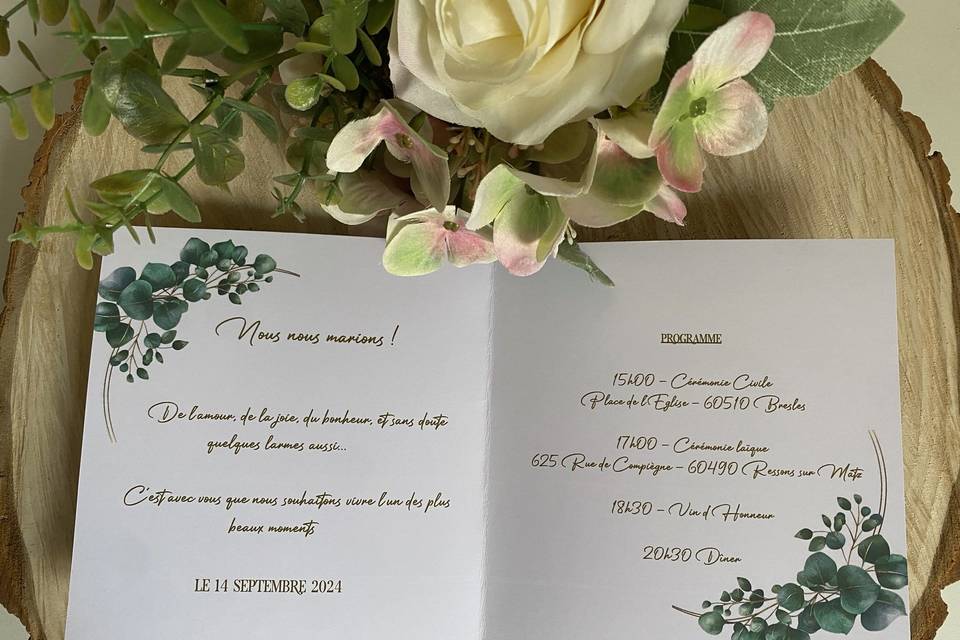 Nous nous marions !
De l'amour, de la joie, du bonheur, et sans doute
quelques larmes aussi...
C'est avec vous que nous souhaitons vivre l'un des plus
beaux moments
LE 14 SEPTEMBRE 2024
PROGRAMME
15h00 – Cérémonie Civile
Place de l'Eglise – 60510 Bresles
17h00 – Cérémonie laïque
625 Rue de Compiègne – 60490 Ressons sur Matz
18h30 – Vin d'Honneur
20h30 Dîner